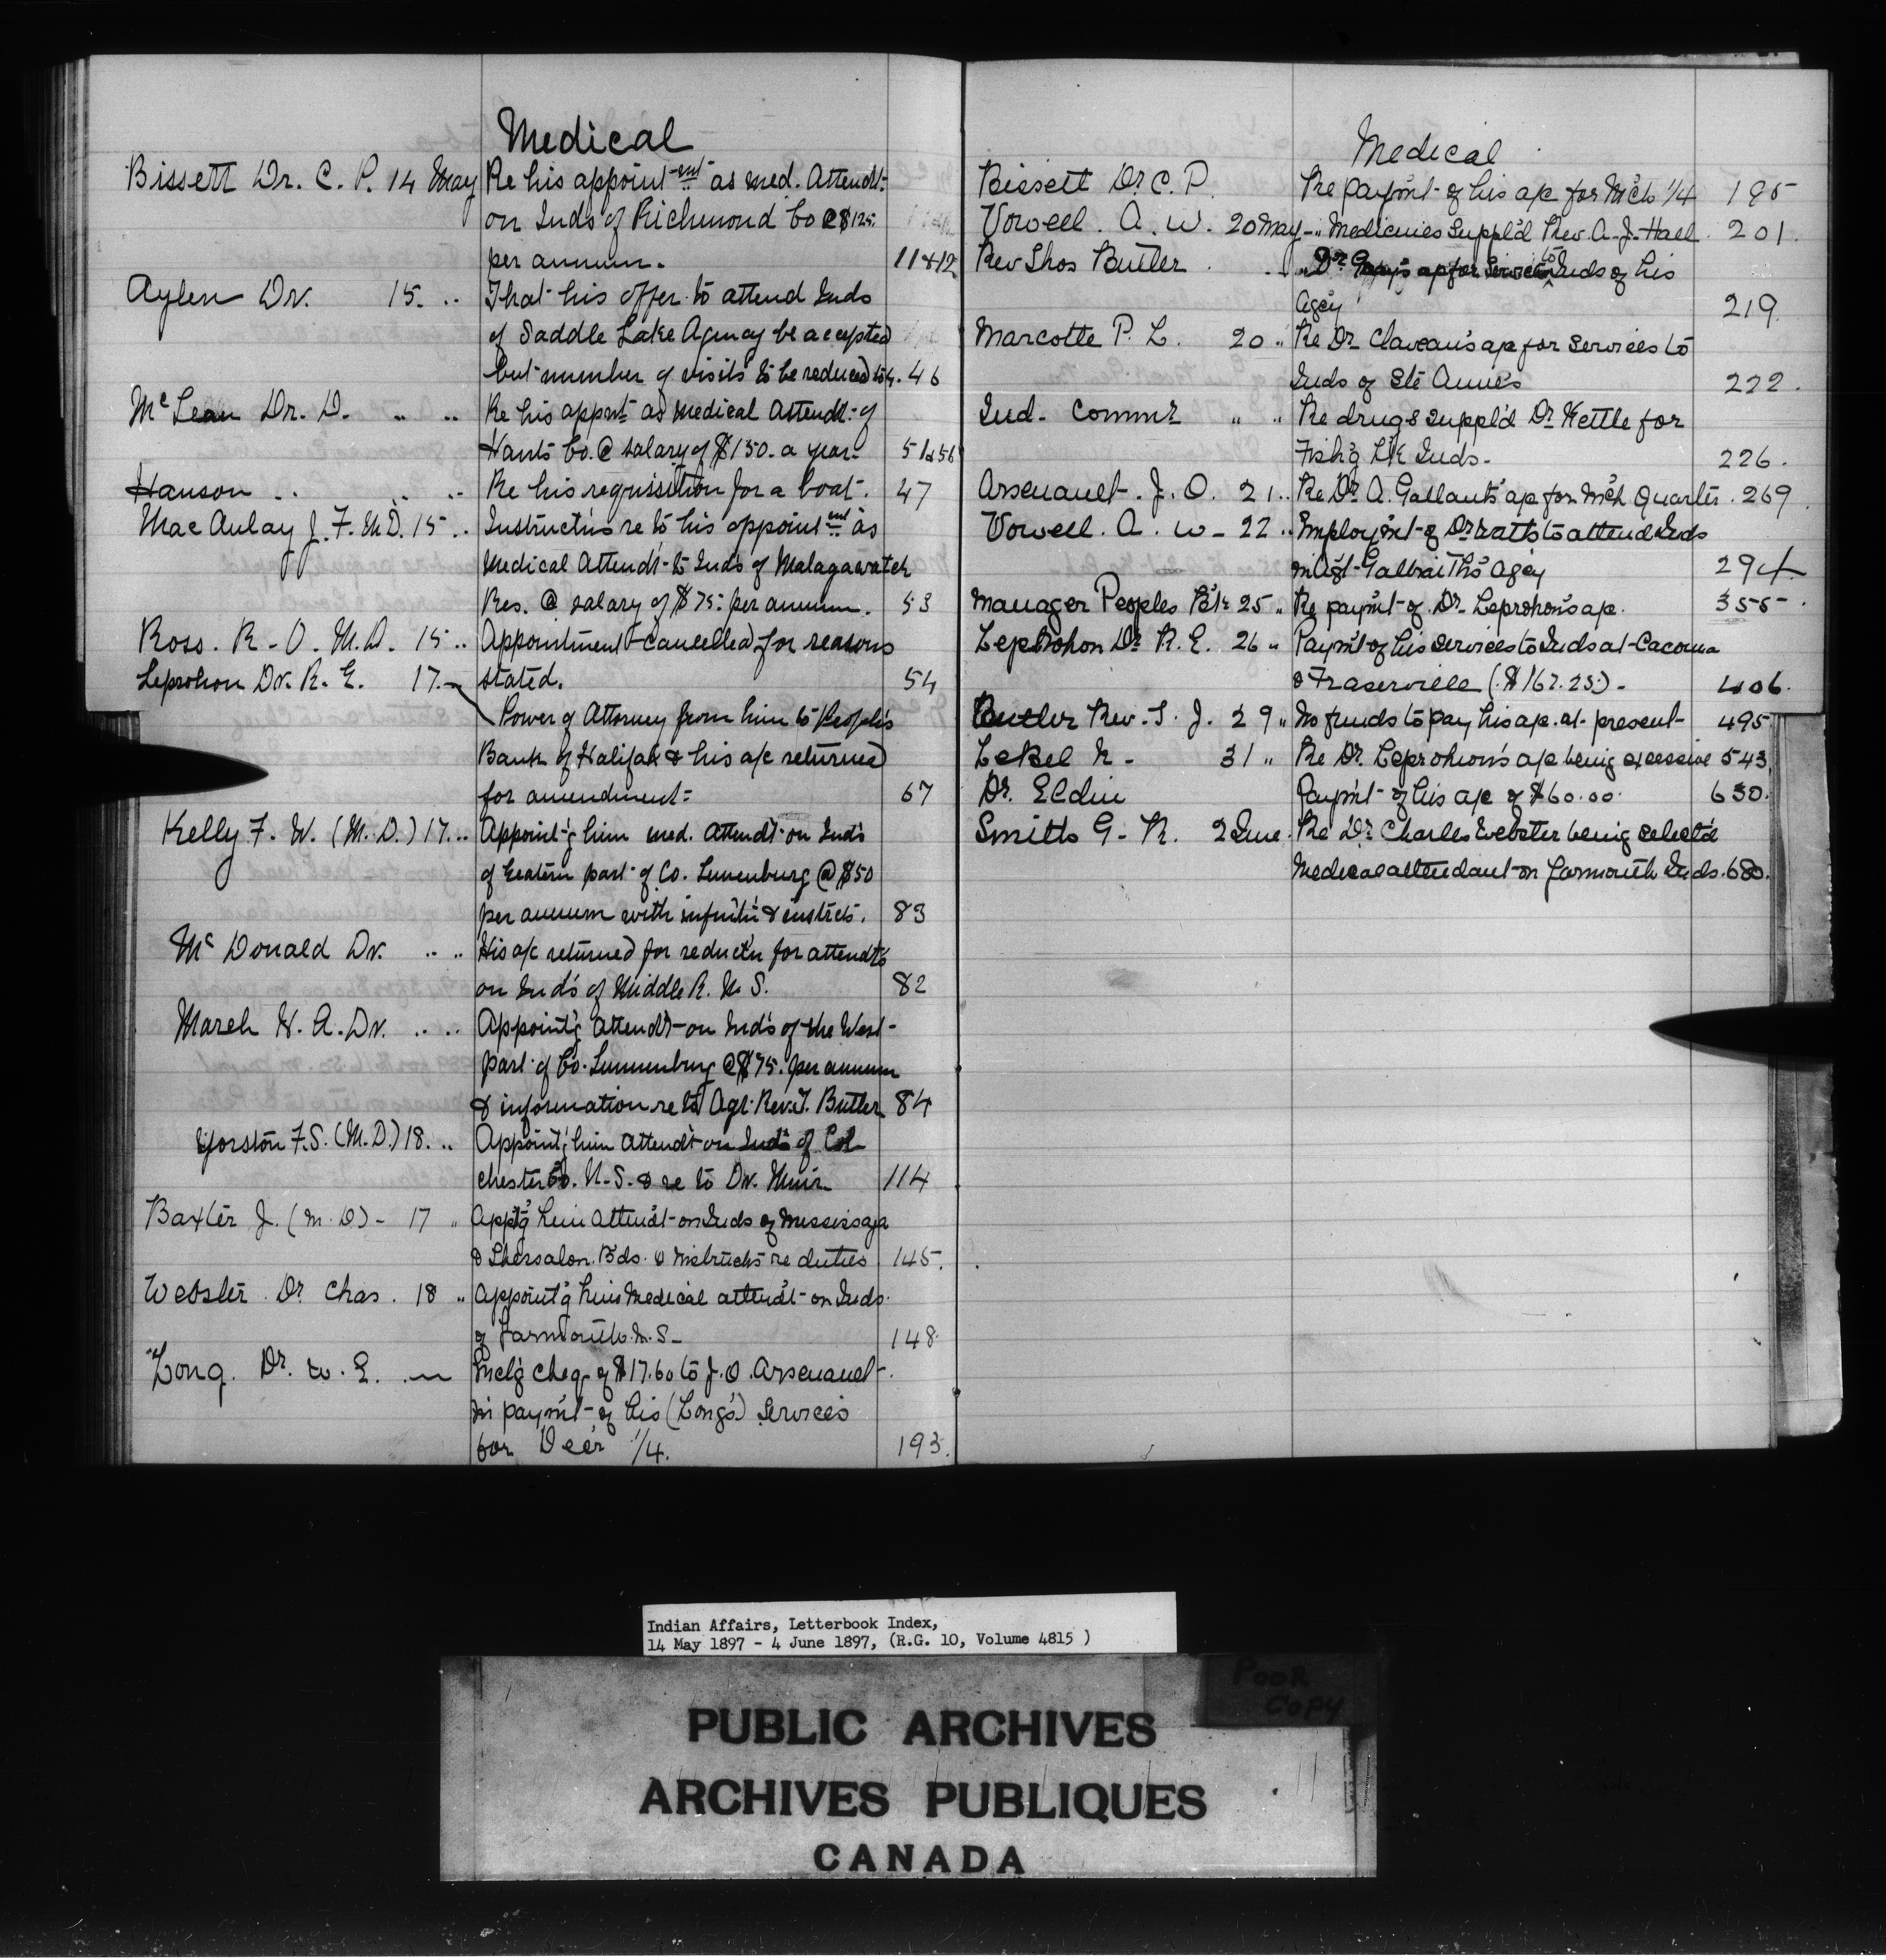 Medical
Bissett Dr. C. P. 14 May Re his appoint-ent as med. Attendt.
on Inds of Richmond Co @ $125.
per annum. 11 & 12
Aylen Dr. 15. .. That his offer to attend Inds
of Saddle Lake Agency be accepted
but number of visits to be reduced to 4. 46
McLean Dr. D. .. .. Re his appmt as Medical Attendt. of
Hants Co. @ salary of $150. a year. 51 & 56
Hanson .. .. .. Re his requisition for a boat. 47
MacAulay J. F. M.D. 15 .. Instructns re to his appointmt as
Medical Attendt to Inds of Malagawatch
Res. @ salary of $75. per annum. 53
Ross. R. O. M.D. 15 .. Appointment cancelled for reasons
stated. 54
Leprohon Dr. R. E. 17.
Power of Attorney from him to People's
Bank of Halifax & his a/c returned
for amendment. 67
Kelly F. W. (M.D.) 17... Appoint'g him med. attendt on Inds
of Eastern part of Co. Lunenburg @ $50
per annum with & instrcts. 83
McDonald Dr. .. .. His a/c returned for reductn for attendts
on Inds of Middle R. N.S. 82
March H. A. Dr. .. .. Appoint'g attendt on Inds of the West
part of Co. Lunenburg @ $75. per annum
& information re to Agt. Rev. T. Butler 84
Yorston F.S. (M.D.) 18. .. Appoint'g him attendt on Inds of Col
chester Co. N.S. & re to Dr. Muir 114
Baxter J. (M.D) - 17 " Appt'g him attendt on Inds of Mississaga
& Thessalon Bds. & instructs re duties 145.
Webster Dr Chas. 18 " Appoint'g him Medical attendt on Inds.
of Yarmouth N.S. 148.
Long. Dr. W. E. Incl'g cheq. of $17.60 to J. O. Arsenault
in paym't of his (Long's) services
for Decr 1/4. 193.
Medical
Bissett Dr C. P. Re paym't of his a/c for Mch 1/4 195
Vowell. A. W. 20 May " Medicines Suppl'd Rev. A. J. Hall. 201.
Rev Thos Butler . " Dr a/c for services to Inds of his
Agcy 219.
Marcotte P. L. 20 " Re Dr Claveau's a/c for services to
Inds of Ste Anne's 222.
Ind. Commr " " Re drugs suppl'd Dr Kettle for
Fish'g Lk Inds. 226.
Arsenault. J. O. 21 .. Re Dr A. Gallant's a/c for Mch Quarter. 269.
Vowell. A. W. 22 .. Employm't of Dr Watts to attend Inds
in Agt Galbraith's Agcy 294
Manager Peoples Bk 25 " Re paym't of Dr Leprohon's a/c. 355.
Leprohon Dr R. E. 26 " Paym't of his services to Inds at Cacouna
& Fraserville ($167.25). 406.
Butler Rev. T. J. 29 " No funds to pay his a/c. at present 495
LeBel N. 31 " Re Dr Leprohon's a/c being excessive 543
Dr. Eldin Paym't of his a/c of $60.00. 630.
Smith G. R. 2 June. Re Dr Charles Webster being select'd
Medical attendant on Yarmouth Inds. 680.
Indian Affairs, Letterbook Index,
14 May 1897 - 4 June 1897, (R.G. 10, Volume 4815 )
POOR
COPY
PUBLIC ARCHIVES
ARCHIVES PUBLIQUES
CANADA